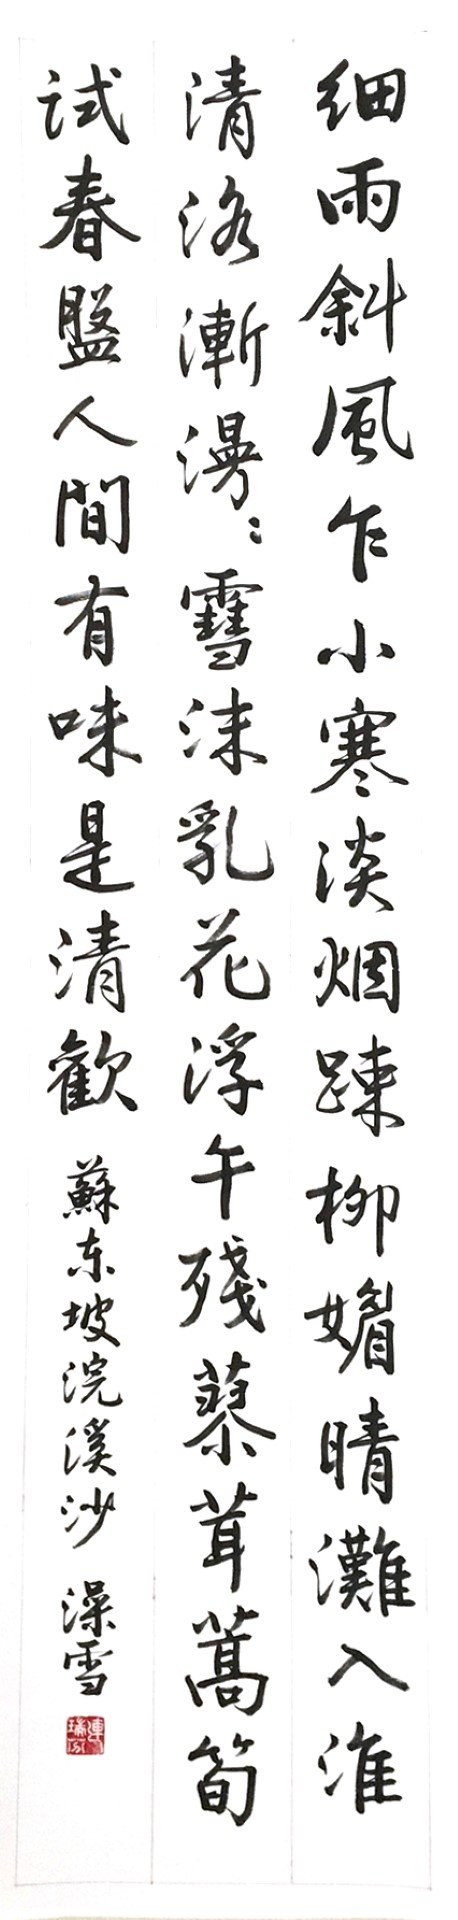 細雨斜風乍小寒淡烟疎柳媚晴灘入淮
清洛漸漫〻雪沫乳花浮午殘蓼茸蒿筍
試春盤人間有味是清歡 蘇东坡浣溪沙 澡雪